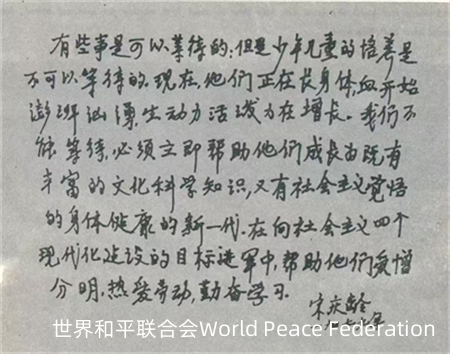 有些事是可以等待的;但是少年儿童的培养是
不可以等待的.现在,他们正在长身体,血开始
澎湃汹涌,生动力活泼力在增长。我们不
能等待,必须立即帮助他们成长为既有
丰富的文化科学知识,又有社会主义觉悟
的身体健康的新一代.在向社会主义四个
现代化建设的目标进军中,帮助他们爱憎
分明.热爱劳动,勤奋学习.
宋庆龄
世界和平联合会World Peace Federation